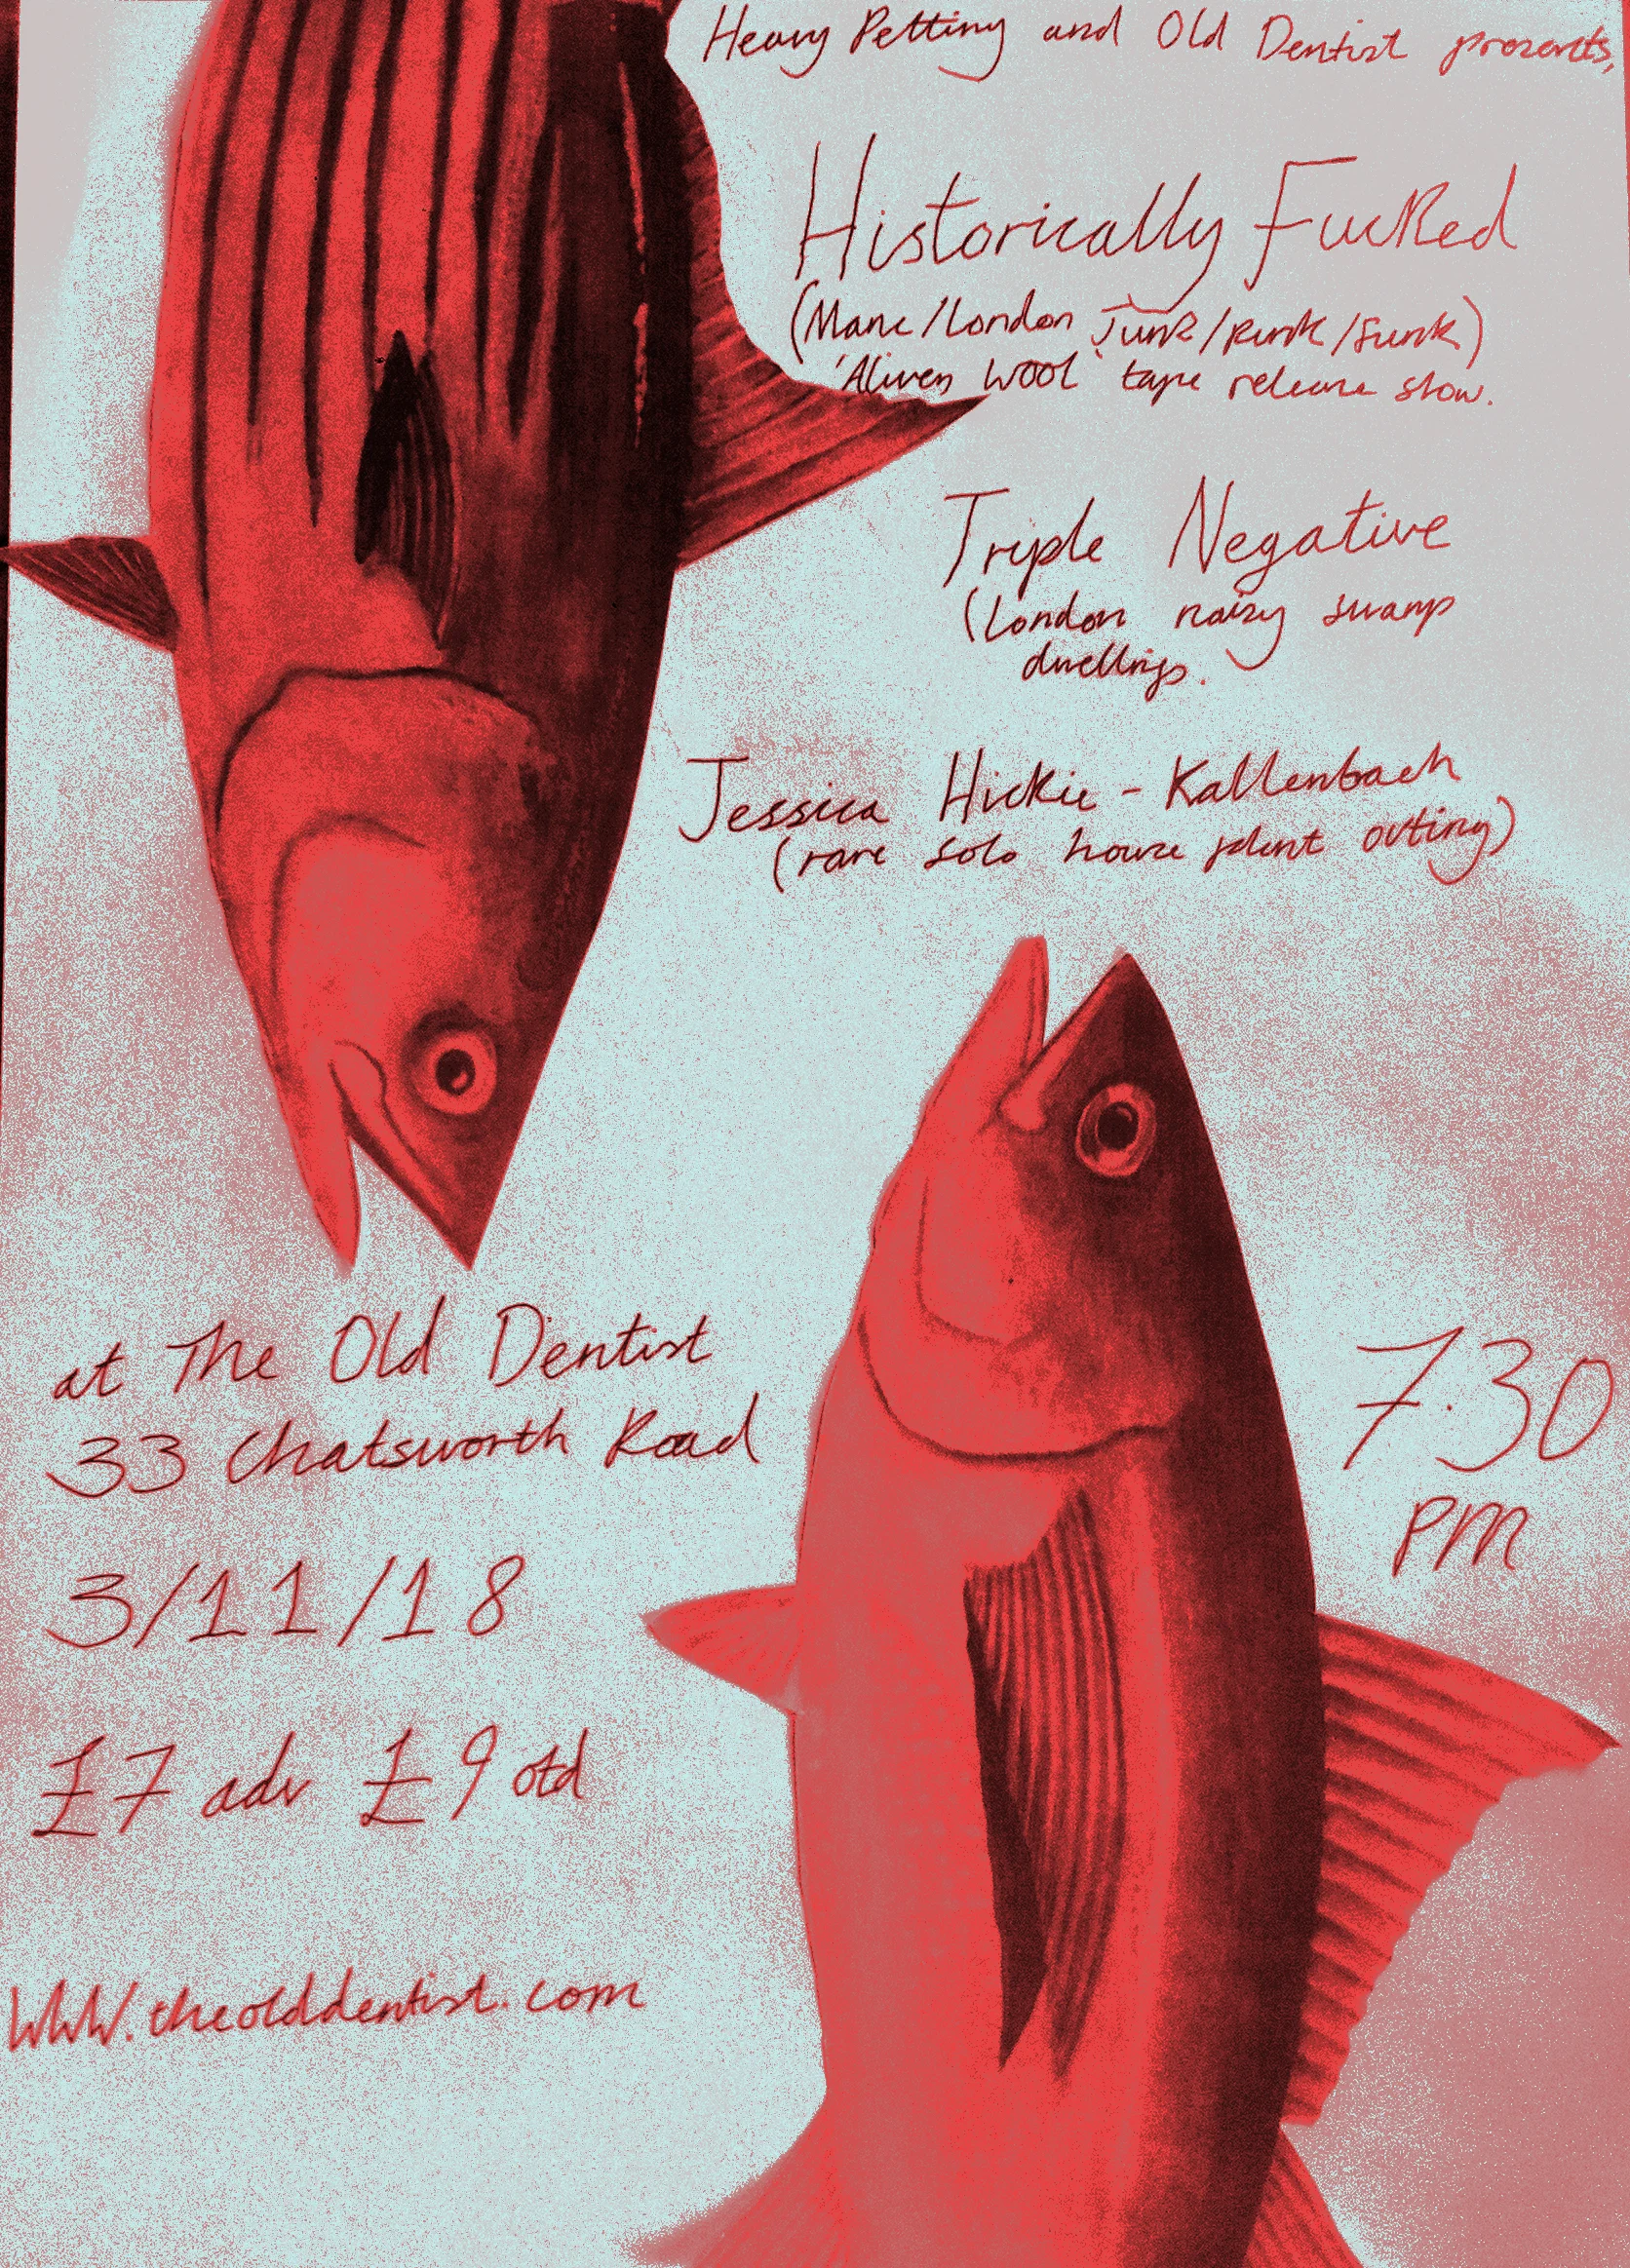 Heavy Petting and Old Dentist presents,
Historically Fucked
(Manc/London Junk/Punk/Funk)
'Aliven Wool' tape release show.
Triple Negative
(London noisy swamp
dwellings.
Jessica Hickie-Kallenbach
(rare solo house plant outing)
at The Old Dentist
33 Chatsworth Road
7.30
pm
3/11/18
£7 adv £9 otd
www.theolddentist.com